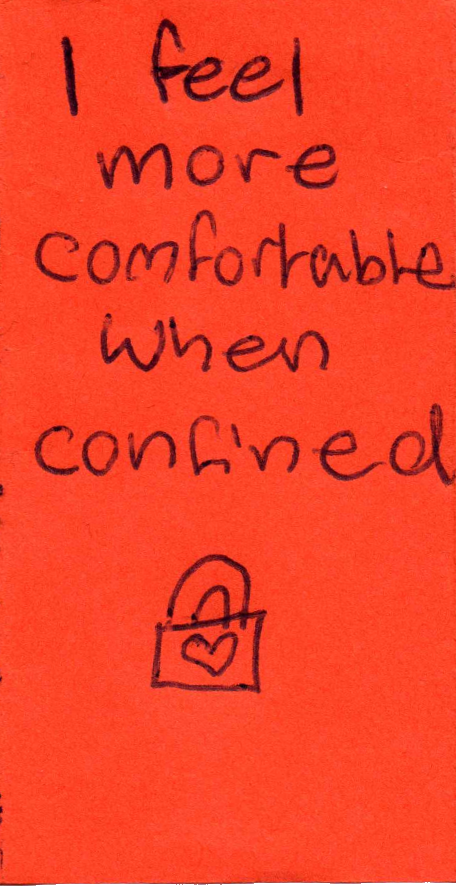 I feel
more
comfortable
when
confined